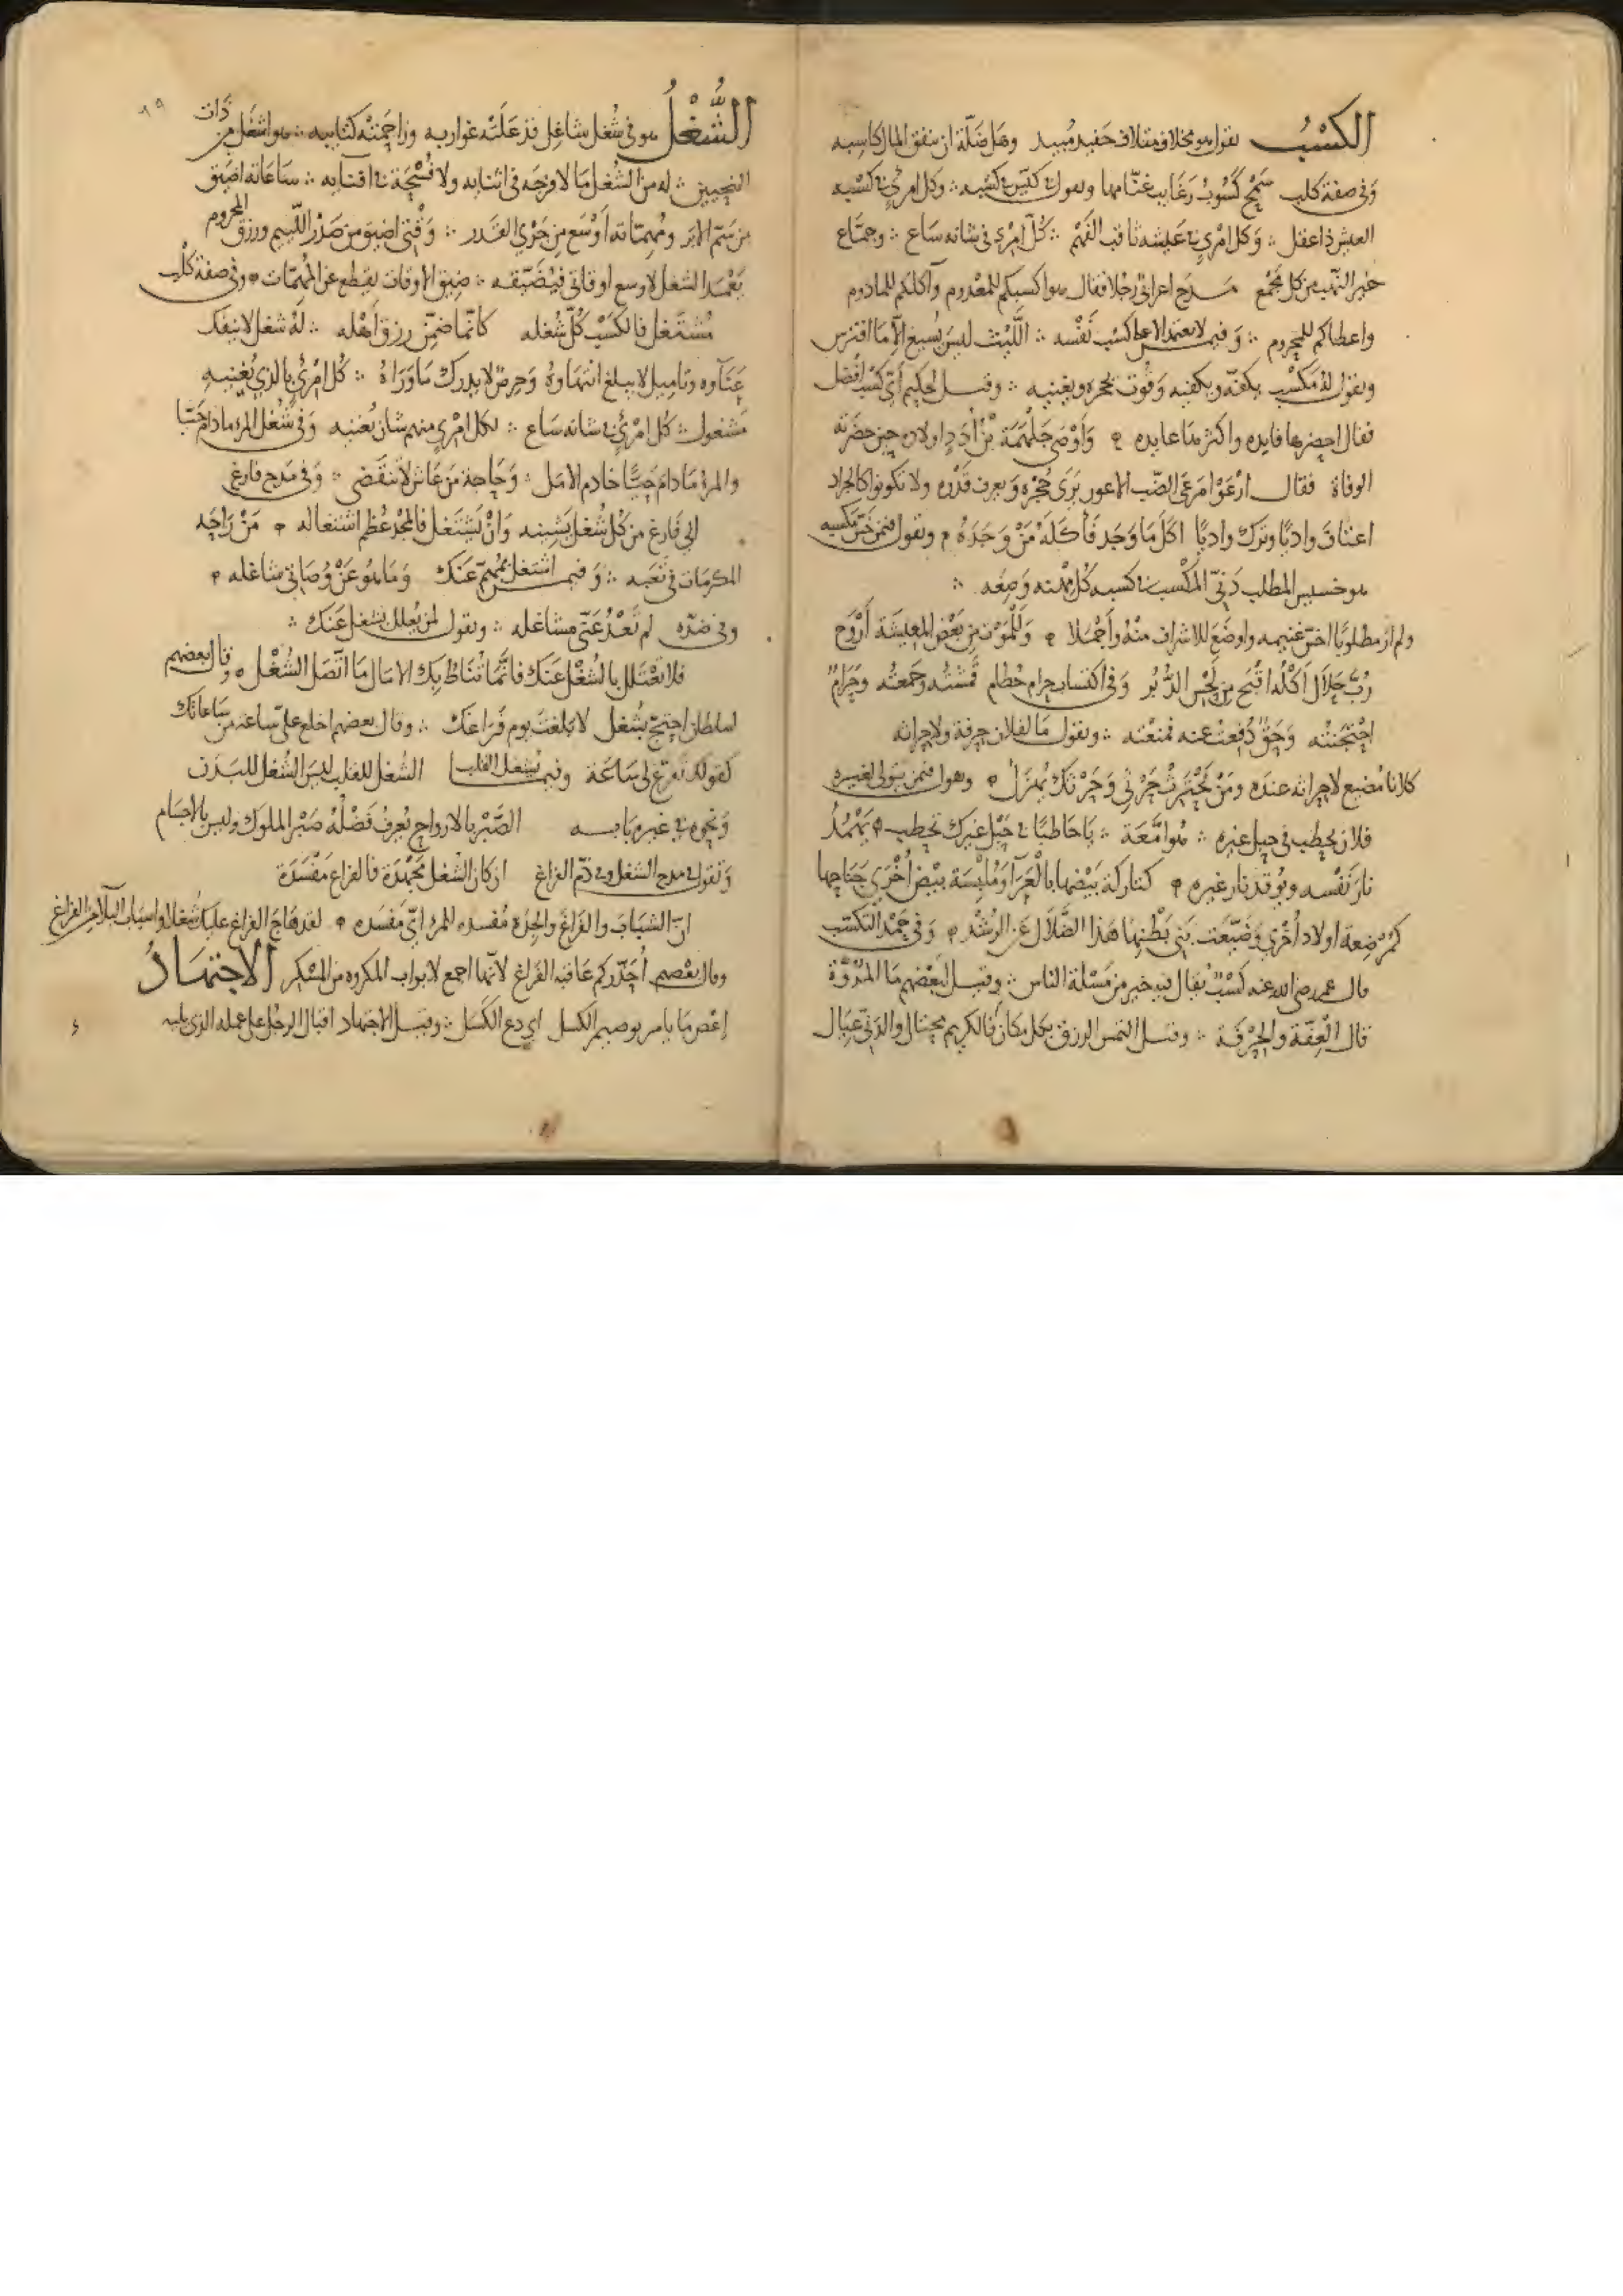 الكسْبُ تقول هو مخلاف متلاف حفيد مبيد وهل ضلّة ان ينفق المال كاسبه
وَفى صفة كلب سَمْحٌ كَسُوبٌ رغايب غنّامها وتقول فى كيّس فى كسْبه ∴ وكل امرئٍ فى كَسْبه
العيش ذا عقل ∴ وَكل امرئٍ فى عَيشه ثاقب الفَهْم ∴ كُلّ امرئٍ فى شانه سَاعٍ ∴ وجمّاع
خير النهب من كل مجْمع مدح اعرابىّ رجلا فقال هو اكسبكم للمعْدوم وآكلكم للمادوم
واعطاكم للمحروم ∴ وَ فيمن لا يعتمد الا على كسْب نَفْسه ∴ اللَّيْث ليسَ يُسيغ الّا مَا افترس
وتقول لهُ مَكسْب يكفّه ويكفيه وَقُوت يحجزه ويغنيه ∴ وقيل لحكيم أىّ كَسْب افضل
فقال احضرها فايده واكثرها عايده وَأوْصى جَلْهَمَة بْن أُدَدٍ اولاده حين حضرته
الوفاة فقال ارْعَوْا مَرعَى الضّب الاعور يَرَى جُحْرَه وَيعرف قَدْره ولا تكونوا كالجراد
اعتافَ واديًا وترك واديًا اكَلَ مَا وَجَد فَأَكَلهُ مَنْ وَجَدَهُ وتقول فيمن خسّ مكسبه
هو خسيس المطلب دَنىّ المَكسْب فى كسبه كُلّ مهْنه وَضِعَه ∴
ولم ار مطلوبًا اخسّ غنيمه واوضَع للاشراف منْهُ وأَخْملا وَلَلْمَوْت من بَعْض المعيشة أَرْوَح
رُبّ حَلاَل أَكْلُه اقْبَح من لحْس الدُّبُر وَفى اكتساب حرام حُطام قمشتُه وجَمعتُه وَحَرَامٌ
احْتجَنْته وَحَقٌ دُفِعْتُ عنه فمنَعْته ∴ وتقول مَا لفلان حِرفة ولا حِراثه
كلانا مُضيع لا حراثه عنده ومَنْ يَحْتَرثْ حَرْثى وَحَرْثَكَ يُهْزَلُ وهوا فيمن يتولى لغيره
فلان يحطب فى حبل غيره ∴ هُو امَّعَة ∴ يَا حَاطبًا فى حَبْل غَيرك تحطب يُخْمدُ
نارَ نَفْسه ويُوقد نار غيره كتاركة بَيْضها بالْعَرَآ وَمُلْبِسَة بَيْضَ أُخْرَى جَناحها
كمُرْضِعة اولاد أُخْرَى وَضيّعَت بَنى بَطْنهَا هَذا الضَّلَال عَن الرُّشْد وَفى حَمْد التكسّب
قال عمر رضى الله عنه كَسْبٌ يُقال فيه خير من مَسْئلة الناس ∴ وقيل لبَعْضهم مَا المُرُوَّة
قال الْعِفّة والحِرْفَة ∴ وقيل التمس الرزق بكل مكان فالكريم محتال والدنىّ عِيَال
الشُّغْلُ هو فى شُغل شاغِل قد عَلَتْه غواربه وزاحَمتْه كتايبه ∴ هو اشغل من ذَات
النحيين ∴ له من الشُغل مَا لا فرجَه فى اثنايه ولا فُسْحَة فى افنايه ∴ سَاعَاته اضيَق
من سَمّ الابر ومُهمّاته أوْسَع مِن جَرْي القَدر ∴ وَقْتى اضيق من صَدْر اللّئيم ورزق المحروم
يَعْمد الشغل لاوسع اوقاتى فيُضَيّقه ∴ ضيق الاوقات يقطع عن المهمّات وفى صفة كلب
مُشتَغل فالكَسْبُ كُلّ شُغله كانّما ضمّن رزق أهْله ∴ لهُ شغل لا ينفك
عَنَآوه وتاميل لا يبلغ انتهاوهُ وَحِرص لا يدرك مَا وَرَاهُ ∴ كُل امْرئٍ بالذى يُغْنيهِ
مَشغول ∴ كُل امْرئٍ فى شانه سَاع ∴ لكل امْرئٍ منهم شان يُغنيه وَفى شُغْل المرء ما دامَ حَيّا
والمرءُ مَا دامَ حَيًّا خادم الامَل ∴ وَحَاجة مَن عَاش لا تنقَضى ∴ وَفى مَدح فارغ
انى فَارغ من كُل شُغل يَشِينه وَانْ يَشتَغل فالمجْد عُظم اشتغاله مَنْ رَاحَه
المكرمات فى تَعبه ∴ وَ فيمن اشتغل بمُهمّ عَنك وَمَا هُو عَنْ وُصَاتى شاغله
وفى ضدّه لم تَعْدُ عَنّى مشاغله ∴ وتقول لمن يُعلّلك بشغل عَنكَ ∴
فلا تعْتَلل بالشُغْل عَنكَ فانَّمَا تُناط بكَ الامال مَا اتّصَل الشُغْل وقال بعضهم
لسلطان احتجّ بشُغل لا بَلغت يوم فَرَاغك ∴ وقال بعضهم اخلع علىّ ساعة من سَاعاتك
كقولك تفرّغ لى سَاعَة وفيما يشغل القلب الشغل للقلب ليسَ الشُغل للبَدَن
وَنحوه فى غير بَابه الصَّبْر بالارواح يُعرفُ فَضْلُهُ صَبْر الملوك وليسَ بالاجسَام
وَتقول فى مدح الشغل وفى ذمّ الفراغ ان كان الشغل مَجْهَدَة فالفراغ مَفْسَدَة
انّ الشبَابَ والفَراغَ والجِدَة مُفسده للمرء اىّ مَفسَده لقد هَاجَ الفراغ عليك شُغلا واسبَاب البلآ من الفراغ
وقال بعضهم أحَذّركم عَاقبة الفَراغ لانّها اجمع لابواب المكروه من السُكر الاجتهَادُ
إعْص مَا يامر بوصيم الكسل اى دع الكَسَل ∴ وقيل الاجتهاد اقبال الرجُل على عمله الذى يليه